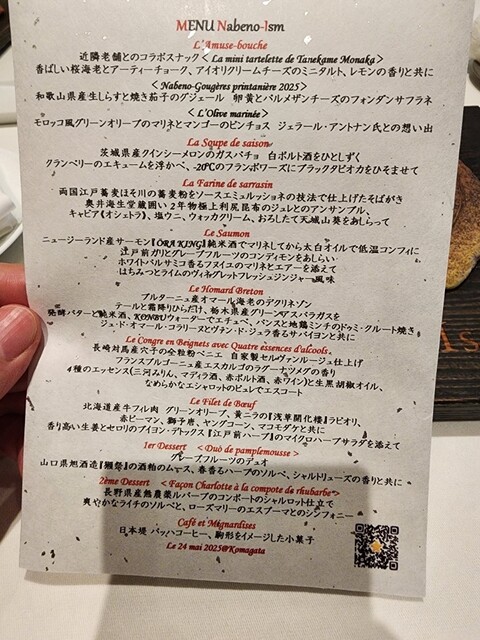 MENU Nabeno-Ism
L'Amuse-bouche
近隣老舗とのコラボスナック < La mini tartelette de Tanekame Monaka >
香ばしい桜海老とアーティーチョーク、アイオリクリームチーズのミニタルト、レモンの香りと共に
< Nabeno-Gougères printanière 2025 >
和歌山県産生しらすと焼き茄子のグジェール 卵黄とパルメザンチーズのフォンダンサフラネ
< L'Olive marinée >
モロッコ風グリーンオリーブのマリネとマンゴーのピンチョス ジェラール・アントナン氏との想い出
La Soupe de saison
茨城県産クインシーメロンのガスパチョ 白ポルト酒をひとしずく
クランベリーのエキュームを浮かべ、-20℃のフランボワーズにブラックタピオカをひそませて
La Farine de sarrasin
両国江戸蕎麦ほそ川の蕎麦粉をソースエミュルッショネの技法で仕上げたそばがき
奥井海生堂蔵囲い2年物極上利尻昆布のジュレとのアンサンブル、
キャビア(オシェトラ)、塩ウニ、ウォッカクリーム、おろしたて天城山葵をあしらって
Le Saumon
ニュージーランド産サーモン『ŌRA KING』純米酒でマリネしてから太白オイルで低温コンフィに
江戸前ガリとグレープフルーツのコンディモンをあしらい
ホワイトバルサミコ香るフヌイユのマリネとエアーを添えて
はちみつとライムのヴィネグレットフレッシュジンジャー風味
Le Homard Breton
ブルターニュ産オマール海老のデクリネゾン
テールと霜降りひらたけ、栃木県産グリーンアスパラガスを
発酵バターと純米酒、KONBUウォーターでエチュベ、パンスと地鶏ミンチのドゥミ・クルート焼き
ジュ・ド・オマール・コラリーヌとヴァン・ド・ジュラ香るサバイヨンと共に
Le Congre en Beignets avec Quatre essences d'alcools
長崎対馬産穴子の全粒粉ベニエ 自家製セルヴァンルージュ仕上げ
フランスブルゴーニュ産エスカルゴのラグーナツメグの香り
4種のエッセンス(三河みりん、マディラ酒、赤ポルト酒、赤ワイン)と生黒胡椒オイル、
なめらかなエシャロットのピュレでエスコート
Le Filet de Bœuf
北海道産牛フィレ肉 グリーンオリーブ、黄ニラの『浅草開化楼』ラビオリ、
赤ピーマン、獅子唐、ヤングコーン、マコモダケと共に
香り高い生姜とセロリのブイヨン・デトックス『江戸前ハーブ』のマイクロハーブサラダを添えて
1er Dessert < Duo de pamplemousse >
グレープフルーツのデュオ
山口県旭酒造『獺祭』の酒粕のムース、春香るハーブのソルベ、シャルトリューズの香りと共に
2ème Dessert < Façon Charlotte à la compote de rhubarbe >
長野県産無農薬ルバーブのコンポートのシャルロット仕立て
爽やかなライチのソルベと、ローズマリーのエスプーマとのシンフォニー
Café et Mignardises
日本堤 バッハコーヒー、駒形をイメージした小菓子
Le 24 mai 2025@Komagata